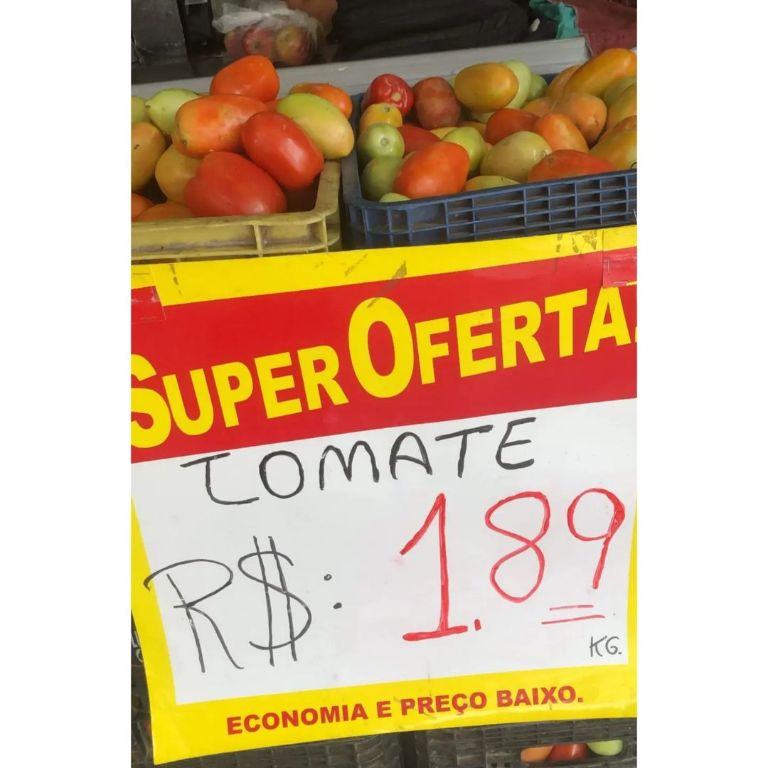 SUPER OFERTA.
TOMATE
R$: 1.89
KG.
ECONOMIA E PREÇO BAIXO.